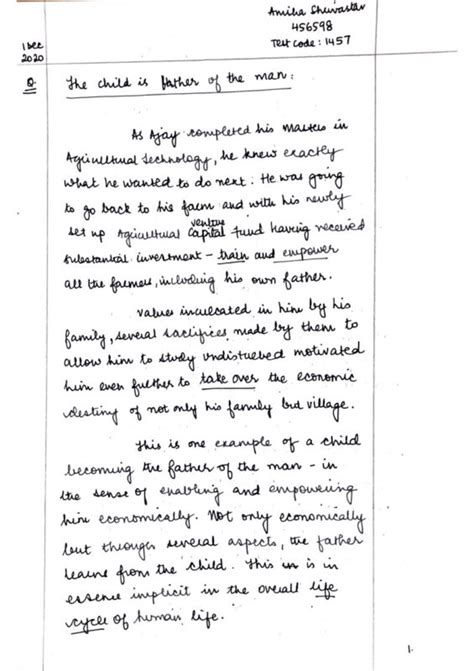 Amiha Shrivastav
456598
Test Code : 1457
1 Dec
2020
Q. The child is father of the man :
As Ajay completed his Masters in
Agricultural Technology, he knew exactly
what he wanted to do next. He was going
to go back to his farm and with his newly
venture
set up Agricultural Capital Fund having received
substantial investment - train and empower
all the farmers, including his own father.
Values inculcated in him by his
family, several sacrifices made by them to
allow him to study undisturbed motivated
him even further to take over the economic
destiny of not only his family but village.
This is one example of a child
becoming the father of the man - in
the sense of enabling and empowering
him economically. Not only economically
but through several aspects, the father
learns from the child. This is in
essence implicit in the overall life
cycle of human life.
1.